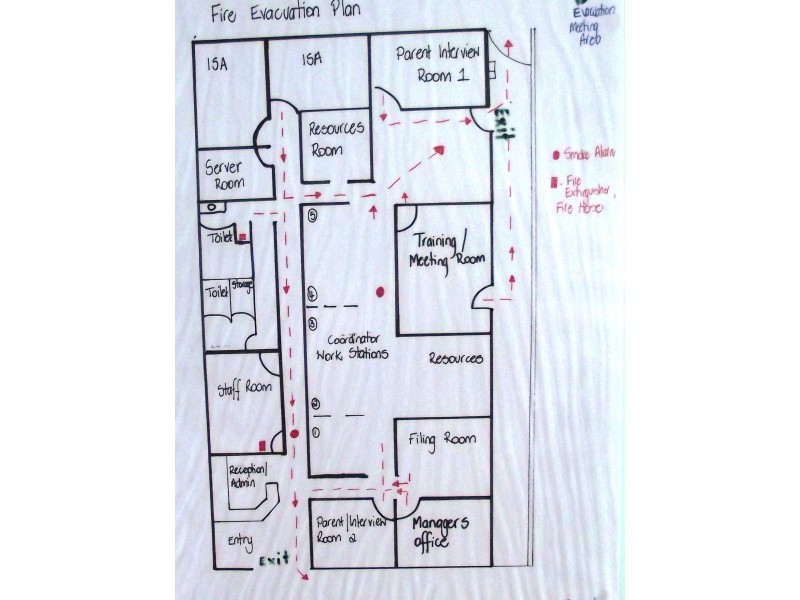 Fire Evacuation Plan
Evacuation
Meeting
Area
ISA
ISA
Parent Interview
Room 1
Exit
Resources
Room
Smoke Alarm
Server
Room
Fire
Extinguisher,
Fire Hose
⑤
Toilet
Training/
Meeting Room
Toilet
Storage
④
③
Coordinator
Work Stations
Resources
Staff Room
②
①
Filing Room
Reception/
Admin
Parent/Interview
Room 2
Managers
office
Entry
Exit